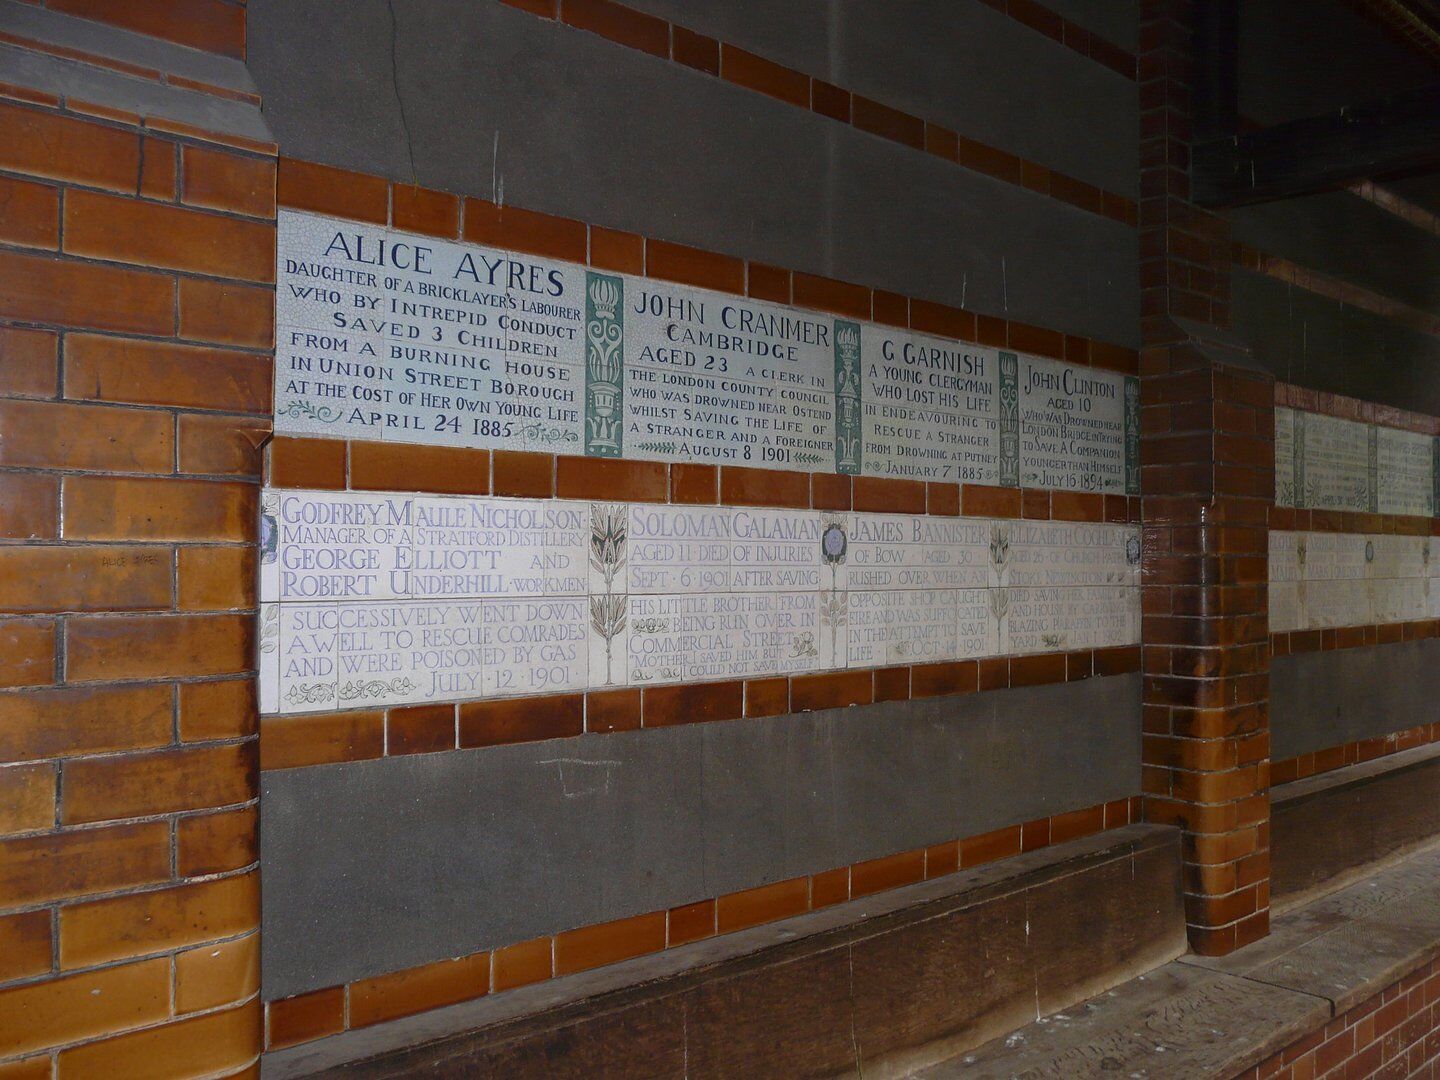 ALICE AYRES
DAUGHTER OF A BRICKLAYER'S LABOURER
WHO BY INTREPID CONDUCT
SAVED 3 CHILDREN
FROM A BURNING HOUSE
IN UNION STREET BOROUGH
AT THE COST OF HER OWN YOUNG LIFE
APRIL 24 1885
JOHN CRANMER
CAMBRIDGE
AGED 23 A CLERK IN
THE LONDON COUNTY COUNCIL
WHO WAS DROWNED NEAR OSTEND
WHILST SAVING THE LIFE OF
A STRANGER AND A FOREIGNER
AUGUST 8 1901
G GARNISH
A YOUNG CLERGYMAN
WHO LOST HIS LIFE
IN ENDEAVOURING TO
RESCUE A STRANGER
FROM DROWNING AT PUTNEY
JANUARY 7 1885
JOHN CLINTON
AGED 10
WHO WAS DROWNED NEAR
LONDON BRIDGE IN TRYING
TO SAVE A COMPANION
YOUNGER THAN HIMSELF
JULY 16 1894
GODFREY MAULE NICHOLSON
MANAGER OF A STRATFORD DISTILLERY
GEORGE ELLIOTT AND
ROBERT UNDERHILL WORKMEN
SUCCESSIVELY WENT DOWN
A WELL TO RESCUE COMRADES
AND WERE POISONED BY GAS
JULY · 12 · 1901
SOLOMAN GALAMAN
AGED 11 · DIED OF INJURIES
SEPT · 6 · 1901 AFTER SAVING
HIS LITTLE BROTHER FROM
BEING RUN OVER IN
COMMERCIAL STREET
"MOTHER I SAVED HIM BUT
I COULD NOT SAVE MYSELF"
JAMES BANNISTER
OF BOW · AGED 30
RUSHED OVER WHEN AN
OPPOSITE SHOP CAUGHT
FIRE AND WAS SUFFOCATED
IN THE ATTEMPT TO SAVE
LIFE · OCT · 14 · 1901
ELIZABETH COGHLAM
AGED 26 OF CHURCH PATH
STOKE NEWINGTON
DIED SAVING HER FAMILY
AND HOUSE BY CARRYING
BLAZING PARAFFIN TO THE
YARD JAN 1 1902
ALICE AYRES